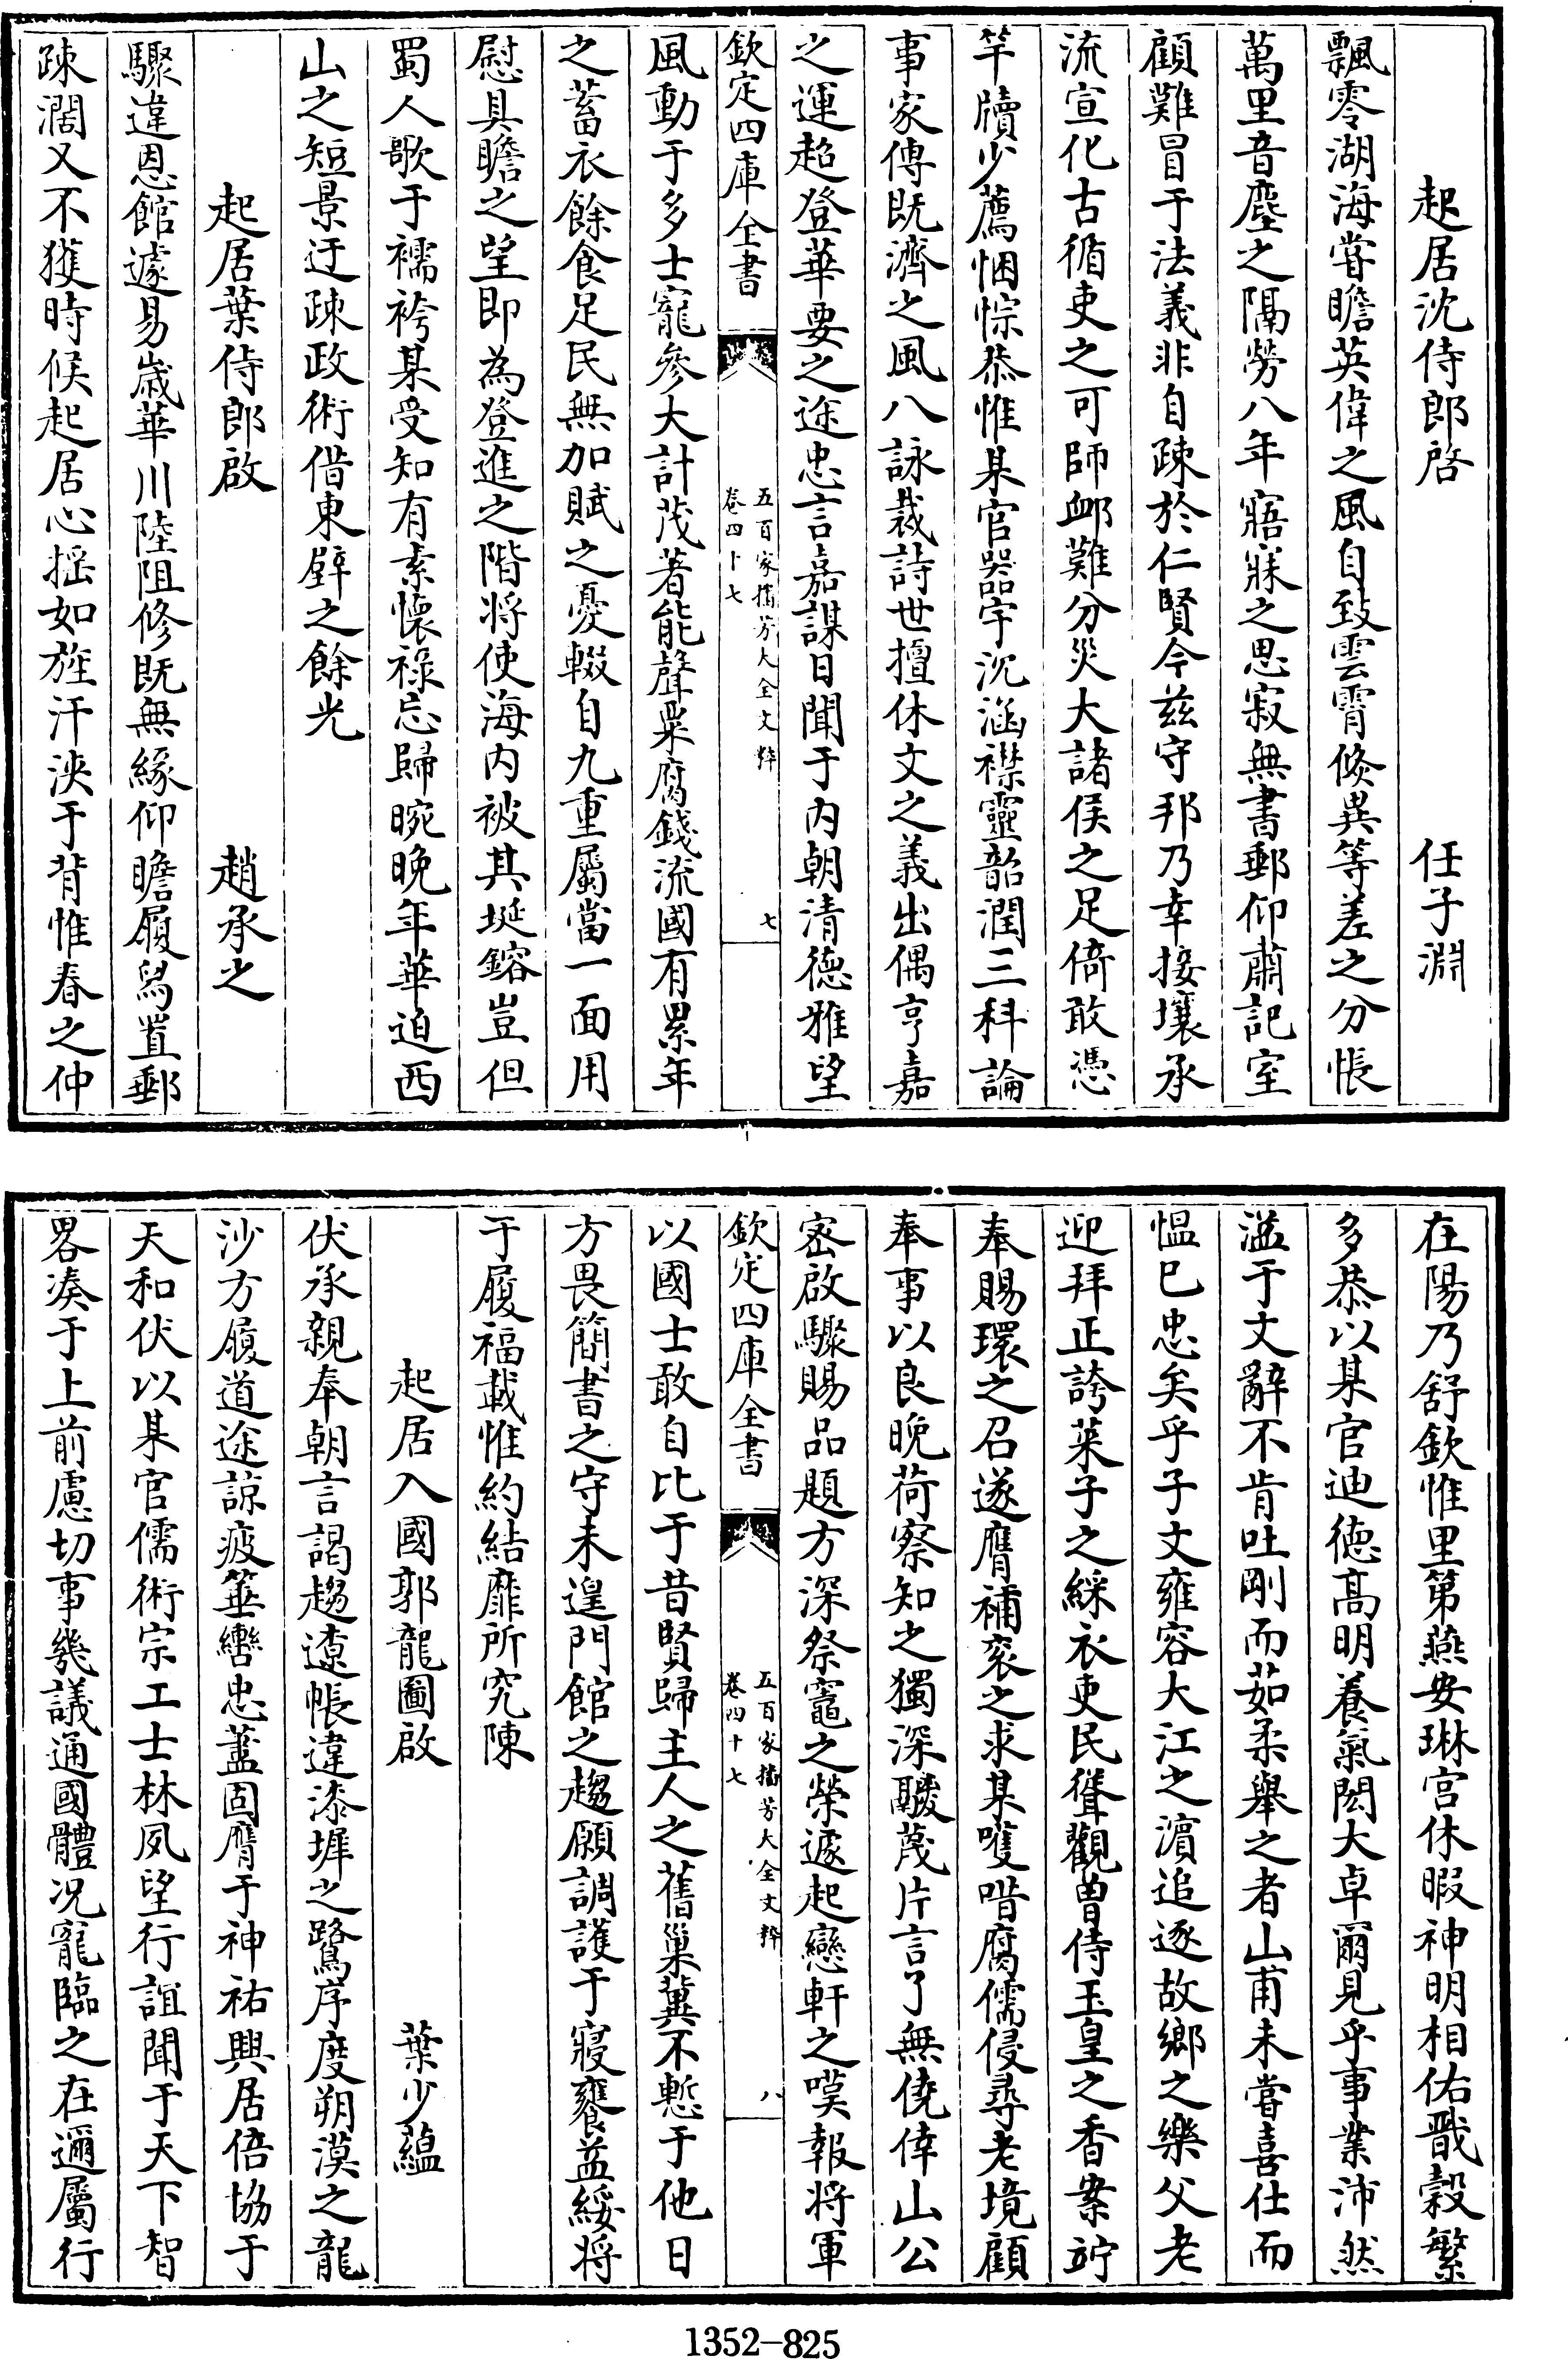 起居沈侍郎啓 任子淵
飄零湖海甞瞻英偉之風自致雲霄倏異等差之分悵
萬里音塵之隔勞八年寤寐之思寂無書郵仰肅記室
顧難冒于法義非自疎於仁賢今兹守邦乃幸接壤承
流宣化古循吏之可師卹難分災大諸侯之足倚敢憑
竿牘少薦悃悰恭惟某官器宇沉涵襟靈韶潤三科論
事家傳既濟之風八詠裁詩世擅休文之義出偶亨嘉
之運超登華要之途忠言嘉謀日聞于内朝清德雅望
欽定四庫全書
五百家播芳大全文粹
卷四十七
七
風動于多士寵參大計茂著能聲粟腐錢流國有累年
之蓄衣餘食足民無加賦之憂輟自九重屬當一面用
慰具瞻之望即為登進之階将使海内被其埏鎔豈但
蜀人歌于襦袴某受知有素懷禄忘歸晼晚年華迫西
山之短景迂疎政術借東壁之餘光
起居葉侍郎啟 趙承之
驟違恩館遽易嵗華川陸阻修既無緣仰瞻履舄置郵
疎濶又不獲時候起居心揺如旌汗浹于背惟春之仲
在陽乃舒欽惟里第燕安琳宫休暇神明相佑戬穀繁
多恭以某官迪德髙明養氣閎大卓爾見乎事業沛然
溢于文辭不肯吐剛而茹柔舉之者山甫未嘗喜仕而
愠已忠矣乎子文雍容大江之濵追逐故鄉之樂父老
迎拜正誇萊子之綵衣吏民聳觀曽侍玉皇之香案竚
奉賜環之召遂膺補衮之求某嘆唶腐儒侵尋老境顧
奉事以良晚荷察知之獨深鬷蔑片言了無僥倖山公
密啟驟賜品題方深祭竈之榮遽起戀軒之嘆報将軍
欽定四庫全書
五百家播芳大全文粹
卷四十七
八
以國士敢自比于昔賢歸主人之舊巢冀不慙于他日
方畏簡書之守未遑門館之趨願調護于寢饔益綏将
于履福載惟約結靡所究陳
起居入國郭龍圖啟 葉少藴
伏承親奉朝言謁趨遼帳違漆墀之鷺序度朔漠之龍
沙方履道途諒疲箠轡忠藎固膺于神祐興居倍協于
天和伏以某官儒術宗工士林夙望行誼聞于天下智
畧凑于上前慮切事幾議通國體况寵臨之在邇屬行
1352-825